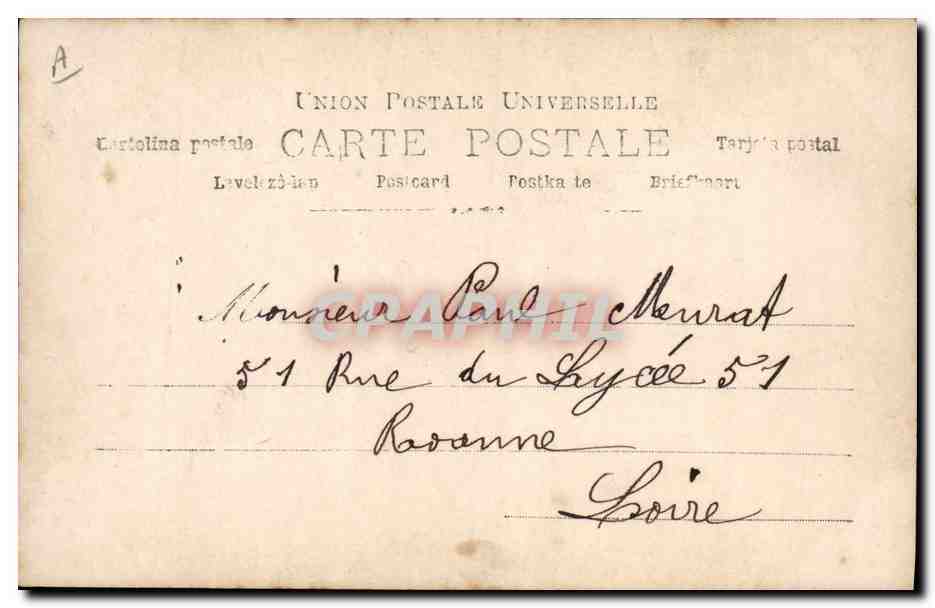 A
UNION POSTALE UNIVERSELLE
Cartolina postale CARTE POSTALE Tarjeta postal
Levelező-lap Postcard Postkarte Briefkaart
CPAPHIL
Monsieur Paul Meurat
51 Rue du Lycée 51
Roanne
Loire